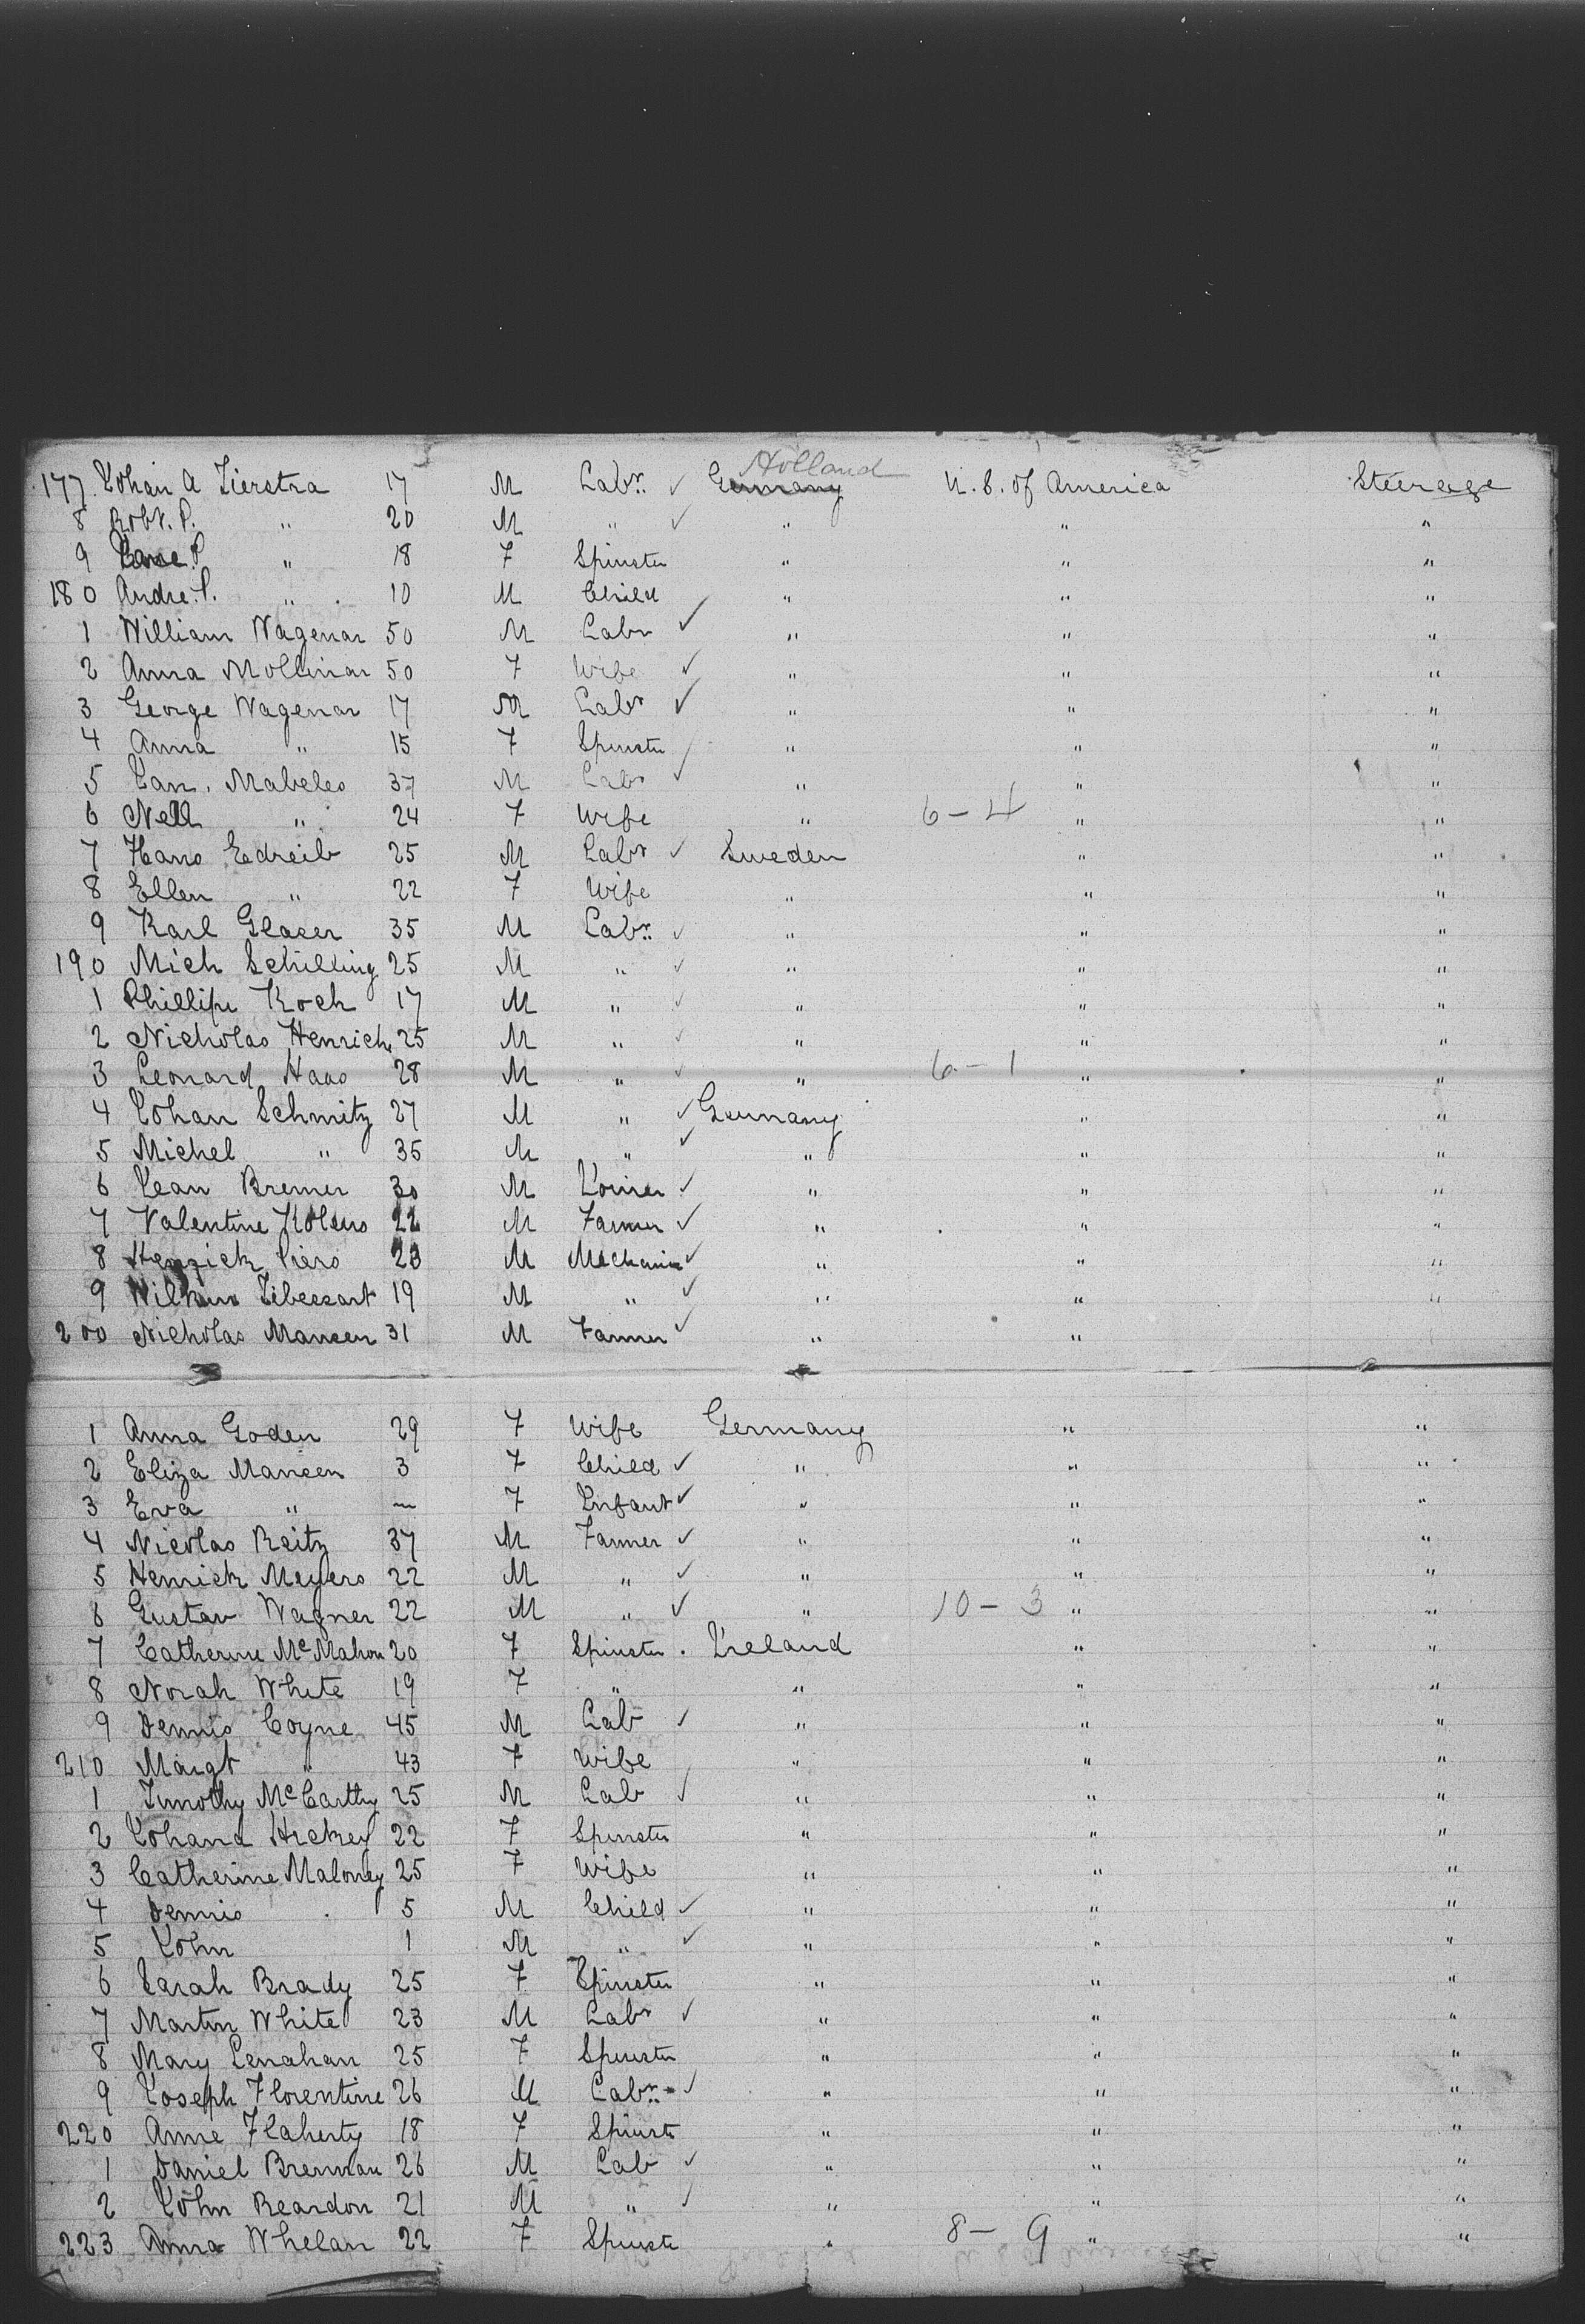 Holland
177. Johan A Zierstra 17 M Labr. ✓ Germany U.S. of America Steerage
8 Robt. P. " 20 M " ✓ " " "
9 P. " 18 F Spinster " " "
180 Andre. P. " 10 M Child " " "
1 William Wagenar 50 M Labr ✓ " " "
2 Anna Mollinar 50 F Wife ✓ " " "
3 George Wagenar 17 M Labr ✓ " " "
4 Anna " 15 F Spinster " " "
5 Jan. Mabeles 37 M Labr ✓ " " "
6 Nell " 24 F Wife " 6-4 " "
7 Hans Edreib 25 M Labr ✓ Sweden " "
8 Ellen " 22 F Wife " " "
9 Karl Glaser 35 M Labr. ✓ " " "
190 Mich Schilling 25 M " ✓ " " "
1 Phillip Koch 17 M " ✓ " " "
2 Nicholas Henrich 25 M " ✓ " " "
3 Leonard Haas 28 M " ✓ " 6-1 " "
4 Johan Schmitz 27 M " ✓ Germany " "
5 Michel " 35 M " ✓ " " "
6 Jean Bremer 30 M Joiner ✓ " " "
7 Valentine 22 M Farmer ✓ " " "
8 23 M Mechanic ✓ " " "
9 19 M " ✓ " " "
200 Nicholas Mansen 31 M Farmer ✓ " "
1 Anna Goden 29 F Wife Germany " "
2 Eliza Mansen 3 F Child ✓ " " "
3 Eva " ~ F Infant ✓ " " "
4 Nicolas Reitz 37 M Farmer ✓ " " "
5 Henrich Meyers 22 M " ✓ " " "
6 Gustav Wagner 22 M " ✓ " 10-3 " "
7 Catherine McMahon 20 F Spinster . Ireland " "
8 Norah White 19 F " " " "
9 Dennis Coyne 45 M Lab ✓ " " "
210 Margt " 43 F Wife " " "
1 Timothy McCarthy 25 M Lab ✓ " " "
2 Johana Hickey 22 F Spinster " " "
3 Catherine Maloney 25 F Wife " " "
4 Dennis . 5 M Child ✓ " " "
5 John 1 M " ✓ " " "
6 Sarah Brady 25 F Spinster " " "
7 Martin White 23 M Labr ✓ " " "
8 Mary Lenahan 25 F Spinster " " "
9 Joseph Florentine 26 M Labr. ✓ " " "
220 Anne Flaherty 18 F Spinstr " " "
1 Daniel Brennan 26 M Lab ✓ " " "
2 John Reardon 21 M " ✓ " " "
223 Anna Whelan 22 F Spinste " 8-9 " "